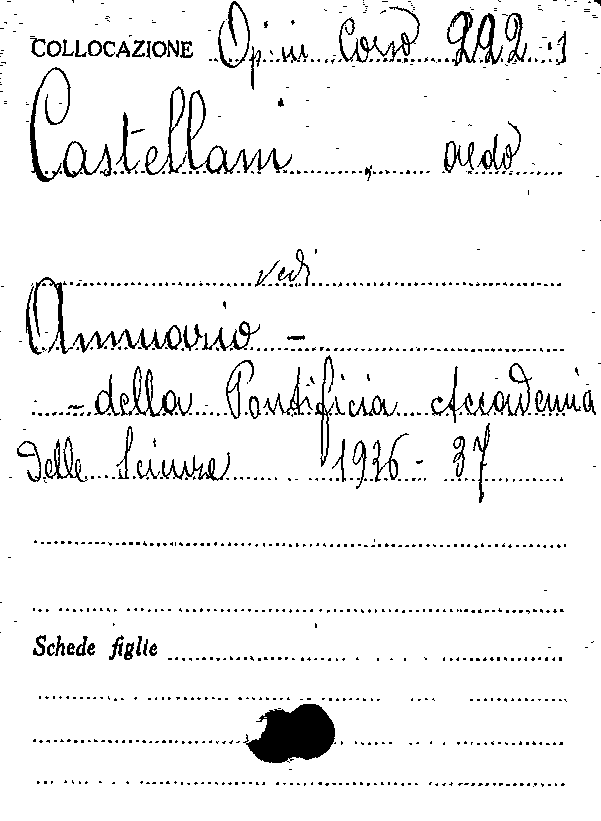 COLLOCAZIONE Op. in Corso 222.1
Castellani, Aldo
vedi
Annuario -
- della Pontificia Accademia
delle Scienze 1936-37
Schede figlie